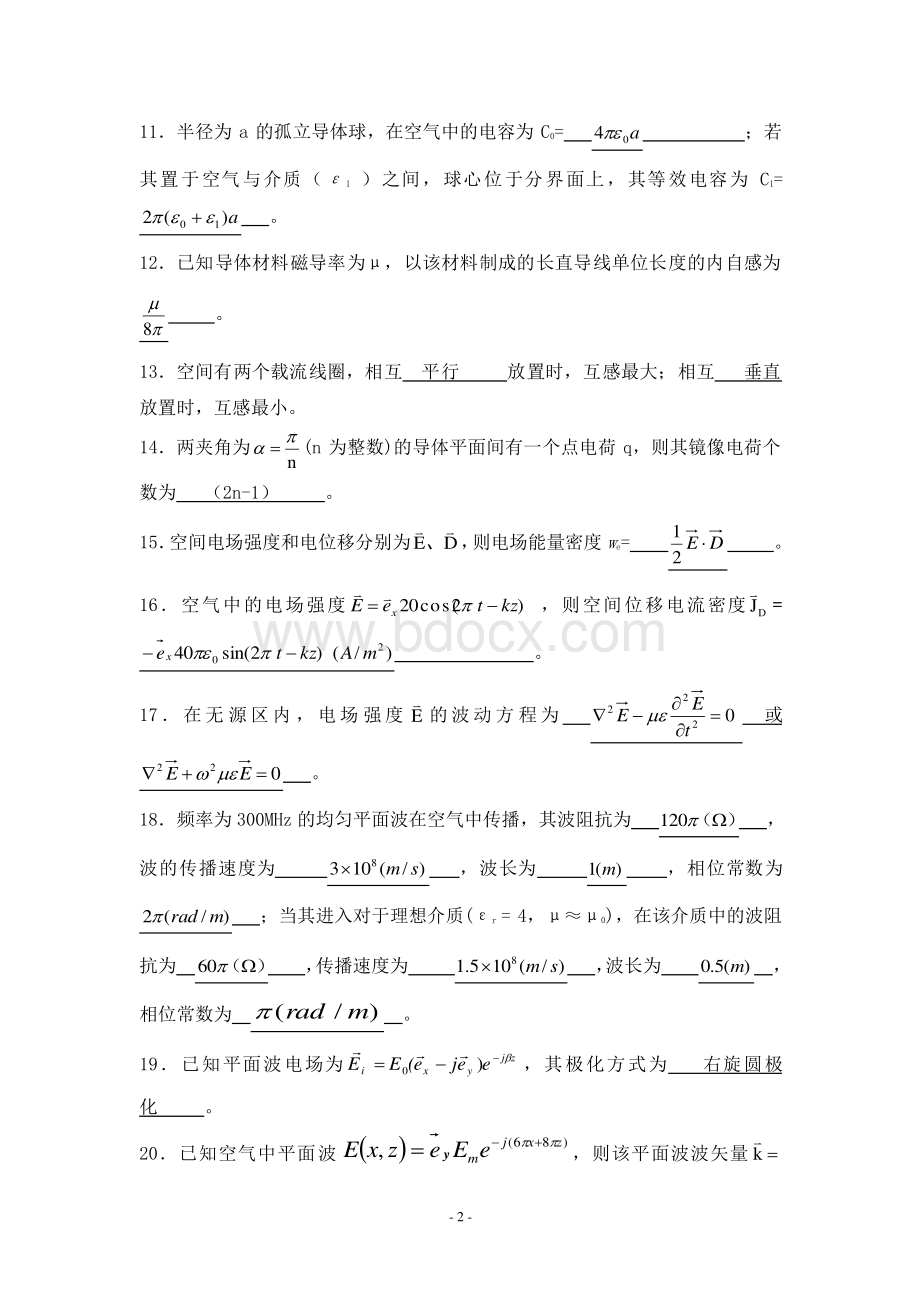 11．半径为 a 的孤立导体球，在空气中的电容为 C₀= 4πε₀a ；若
其置于空气与介质（ε₁）之间，球心位于分界面上，其等效电容为 C₁=
2π(ε₀+ε₁)a 。
12．已知导体材料磁导率为μ，以该材料制成的长直导线单位长度的内自感为
μ/8π 。
13．空间有两个载流线圈，相互 平行 放置时，互感最大；相互 垂直
放置时，互感最小。
14．两夹角为 α=π/n (n 为整数)的导体平面间有一个点电荷 q，则其镜像电荷个
数为 （2n-1） 。
15．空间电场强度和电位移分别为 E⃗、D⃗，则电场能量密度 wₑ= 1/2 E⃗·D⃗ 。
16．空气中的电场强度 E⃗=e⃗ₓ20cos(2πt−kz) ，则空间位移电流密度 J⃗_D =
−e⃗ₓ40πε₀sin(2πt−kz) (A/m²) 。
17．在无源区内，电场强度 E⃗ 的波动方程为 ∇²E⃗−με∂²E⃗/∂t²=0 或
∇²E⃗+ω²μεE⃗=0 。
18．频率为 300MHz 的均匀平面波在空气中传播，其波阻抗为 120π（Ω） ，
波的传播速度为 3×10⁸(m/s) ，波长为 1(m) ，相位常数为
2π(rad/m) ；当其进入对于理想介质(εr = 4，μ≈μ₀)，在该介质中的波阻
抗为 60π（Ω） ，传播速度为 1.5×10⁸(m/s) ，波长为 0.5(m) ，
相位常数为 π(rad/m) 。
19．已知平面波电场为 E⃗ᵢ=E₀(e⃗ₓ−je⃗_y)e^{−jβz} ，其极化方式为 右旋圆极
化 。
20．已知空气中平面波 E(x,z)=e⃗_yE_me^{−j(6πx+8πz)} ，则该平面波波矢量 k⃗=
- 2 -
www.bdocx.com